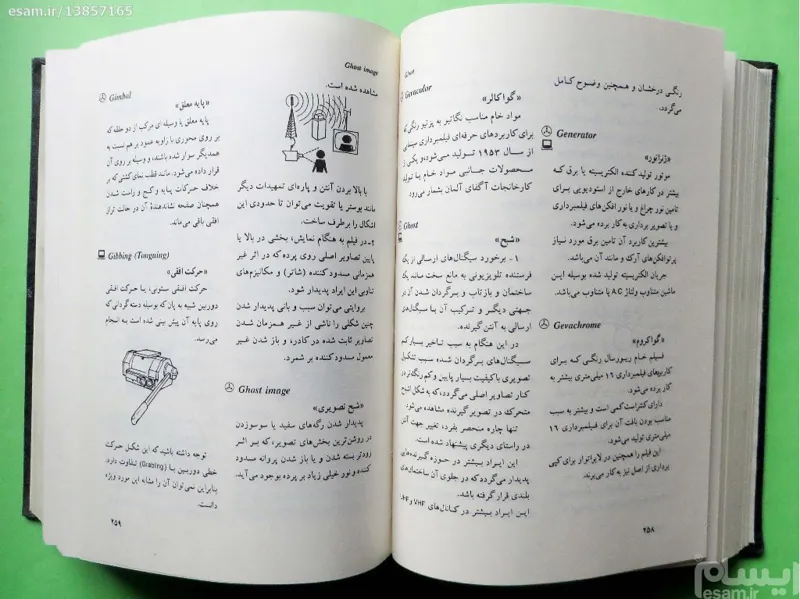 esam.ir/13857165
Gevat
رنگی درخشان و همچنین وضوح کامل
می‌گردد.
Generator
«ژنراتور»
موتور تولید کننده الکتریسیته یا برق که
بیشتر در کارهای خارج از استودیویی برای
تامین نور چراغ و یا نور افکن‌های فیلمبرداری
و یا تصویر برداری به کار برده می‌شود.
بیشترین کاربرد آن تامین برق مورد نیاز
پرتوافکن‌های آرک و مانند آن می‌باشد.
جریان الکتریسیته تولید شده بوسیله این
ماشین متناوب ولتاژ A.C یا متناوب می‌باشد.
Gevachrome
«گواکروم»
فیلم خام ریورسال رنگی که برای
کاربردهای فیلمبرداری ۱۶ میلی‌متری بیشتر به
کار برده می‌شود.
دارای کنتراست کمی است و بیشتر به سبب
مناسب بودن بافت آن برای فیلمبرداری ۱۶
میلی‌متری تولید می‌شود.
این فیلم را همچنین در لابراتوار برای کپی
برداری از اصل نیز به کار می‌برند.
۲۵۸
Gevacolor
«گواکالر»
مواد خام مناسب نگاتیو به پزتیو رنگی که
برای کاربردهای حرفه‌ای فیلمبرداری سینمایی
از سال ۱۹۵۳ تولید می‌شود و یکی از
محصولات جانبی مواد خام با تولید
کارخانجات آگفای آلمان بشمار می‌رود.
Ghost
«شبح»
۱ـ برخورد سیگنال‌های ارسالی از یک
فرستنده تلویزیونی به مانع سخت مانند یک
ساختمان و بازتاب و برگردان شدن آن در
جهتی دیگر و ترکیب آن با سیگنال‌های
ارسالی به آنتن گیرنده.
در این هنگام به سبب تاخیر بسیار کم
سیگنال‌های برگردان شده سبب تشکیل
تصویری با کیفیت بسیار پایین و کم رنگ‌تر در
کنار تصاویر اصلی می‌گردد، که به شکل اشباح
متحرک در تصویر گیرنده مشاهده می‌شود.
تنها چاره منحصر بفرد، تغییر جهت آنتن
در راستای دیگری پیشنهاد شده است.
این ایراد بیشتر در حوزه گیرنده‌هایی
پدیدار می‌گردد که در جلوی آن ساختمان‌های
بلندی قرار گرفته باشد.
این ایراد بیشتر در کانال‌های VHF و
Ghost image
مشاهده شده است.
با بالا بردن آنتن و پاره‌ای تمهیدات دیگر
مانند بوستر یا تقویت می‌توان تا حدودی این
اشکال را برطرف ساخت.
۲ـ در فیلم به هنگام نمایش، بخشی در بالا یا
پایین تصاویر اصلی روی پرده که در اثر غیر
همزمانی مسدود کننده (شاتر) و مکانیزم‌های
تناوبی این ایراد پدیدار شد.
بروایتی می‌توان سبب و بانی پدیدار شدن
چنین شکلی را ناشی از غیر همزمان شدن
تصاویر ثابت شده در کادر، و باز شدن غیر
معمول مسدود کننده بر شمرد.
Ghost image
«شبح تصویری»
پدیدار شدن رگه‌های سفید یا سوسوزدن
در روشن‌ترین بخش‌های تصویر، که بر اثر
زودتر بسته شدن و یا باز شدن پروانه مسدود
کننده و نور خیلی زیاد بر پرده بوجود می‌آید.
Gimbal
«پایه معلق»
پایه معلق یا وسیله ای مرکب از دو حلقه که
بر روی محوری با زاویه عمود بر هم نسبت به
همدیگر سوار شده باشند، و وسیله بر روی آن
قرار داده می‌شود. مانند قطب نمای کشتی که بر
خلاف حرکات پیاپه و کج و راست شدن
همچنان صفحه نشاندهندهٔ آن در حالت تراز
افقی باقی می‌ماند.
Gibbing (Tounguing)
«حرکت افقی»
حرکت افقی ستونی، یا حرکت افقی
دوربین شبیه به پان که بوسیله دسته گردانی که
روی پایه آن پیش بینی شده است به انجام
می‌رسد.
توجه داشته باشید که این شکل حرکت
خطی دوربین با (Grabing) تفاوت دارد.
بنابراین نمی‌توان آن را مشابه این مورد ویژه
دانست.
۲۵۹
ایسام
esam.ir